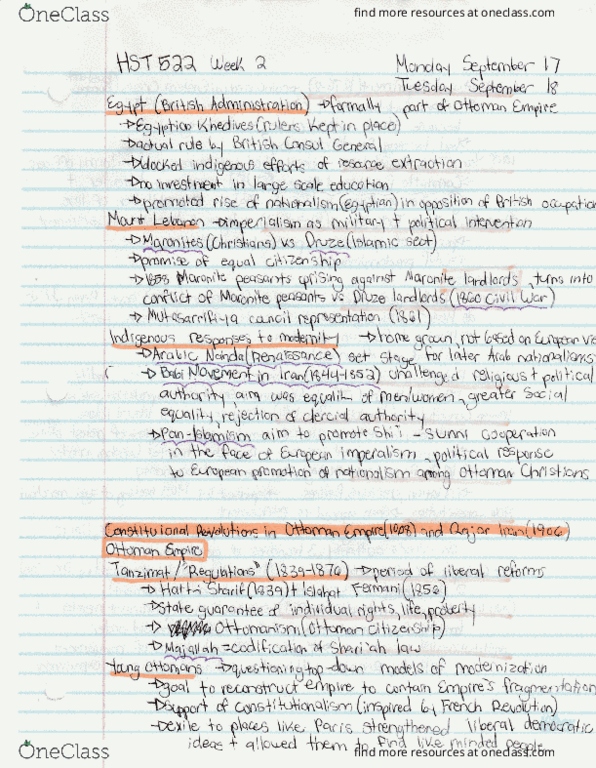 OneClass
find more resources at oneclass.com
HST522 Week 2 Monday September 17
Tuesday September 18
Egypt (British Administration) → formally part of Ottoman Empire
→ Egyptian Khedives (rulers kept in place)
→ actual rule by British Consul General
→ blocked indigenous efforts of resource extraction
→ no investment in large scale education
→ promoted rise of nationalism (Egyptian) in opposition of British occupation
Mount Lebanon → imperialism as military + political intervention
→ Maronites (Christians) vs Druze (Islamic sect)
→ promise of equal citizenship
→ 1858 Maronite peasants uprising against Maronite landlords, turns into
conflict of Maronite peasants vs Druze landlords (1860 Civil War)
→ Mutasarrifiyya council representation (1861)
Indigenous responses to modernity → home grown, not based on European
→ Arabic Nahda (Renaissance) set stage for later Arab nationalisms
→ Babi Movement in Iran (1844-1852) challenged religious + political
authority, aim was equality of men/women, greater social
equality, rejection of clercial authority
→ Pan-Islamism aim to promote Shi'i - Sunni cooperation
in the face of European imperialism, political response
to European promotion of nationalism among Ottoman Christians
Constitutional Revolutions in Ottoman Empire (1908) and Qajar Iran (1906)
Ottoman Empire
Tanzimat / "Regulations" (1839-1876) → period of liberal reforms
→ Hatti Sharif (1839) + Islahat Fermani (1856)
→ state guarantee of individual rights, life, property
→ Ottomanism (Ottoman citizenship)
→ Majallah = codification of Shari'ah law
Young Ottomans → questioning top-down models of modernization
→ goal to reconstruct empire to contain Empire's fragmentation
→ support of Constitutionalism (inspired by French Revolution)
→ exile to places like Paris strengthened liberal democratic
ideas + allowed them to find like minded people
OneClass
find more resources at oneclass.com